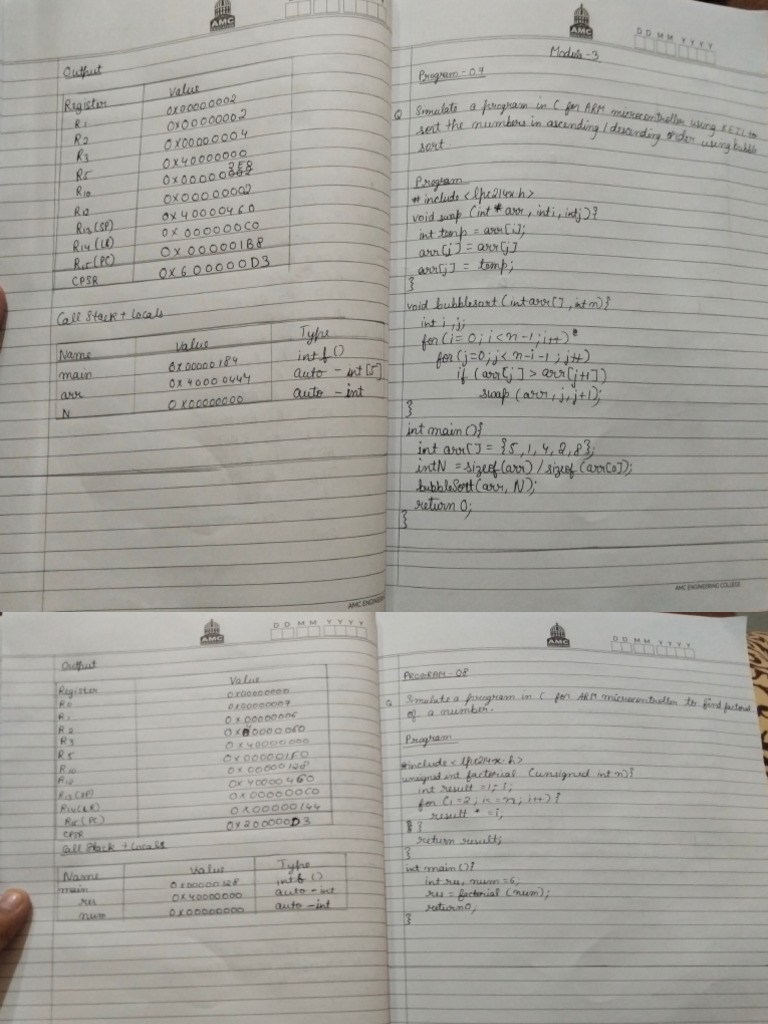 AMC
Output
Register Value
R1 0x00000002
R2 0x00000002
R3 0x00000004
R5 0x40000000
R10 0x00000358
R12 0x00000002
R13 (SP) 0x40000460
R14 (LR) 0x000000C0
R15 (PC) 0x000001B8
CPSR 0x600000D3
Call Stack + Locals
Name Value Type
main 0x00000184 int f()
arr 0x40000444 auto - int [5]
N 0x00000000 auto - int
AMC ENGINEERING
AMC
DDMMYYYY
Module-3
Program-07
Q Simulate a program in C for ARM microcontroller using KEIL to
sort the numbers in ascending / desanding order using bubble
sort.
Program
# include <lpc214x.h>
void swap (int * arr, int i, int j) {
int temp = arr[i];
arr[j] = arr[j]
arr[j] = temp;
}
void bubblesort (int arr[], int n) {
int i, j;
for (i = 0; i < n-1; i++)
for (j=0; j< n-i-1; j++)
if (arr[j] > arr[j+1])
swap (arr, j, j+1);
}
int main () {
int arr[] = {5, 1, 4, 2, 8};
int N = sizeof(arr) / sizeof (arr[0]);
bubbleSort (arr, N);
return 0;
}
AMC ENGINEERING COLLEGE
AMC
DDMMYYYY
Output
Register Value
R0 0x00000000
R1 0x00000007
R2 0x00000006
R3 0x00000060
R5 0x40000000
R10 0x000001F0
R12 0x00000128
R13 (SP) 0x40000460
R14 (LR) 0x000000C0
R15 (PC) 0x00000144
CPSR 0x200000D3
Call Stack + Locals
Name Value Type
main 0x00000128 int f ()
res 0x40000000 auto - int
num 0x00000000 auto - int
AMC
DDMMYYYY
PROGRAM - 08
Q Simulate a program in C for ARM microcontroller to find factorial
of a number.
Program
#include <lpc214x.h>
unsigned int factorial (unsigned int n) {
int result = 1, i;
for (i=2; i<=n; i++) {
result * = i;
}
return result;
}
int main () {
int res, num = 6;
res = factorial (num);
return 0;
}